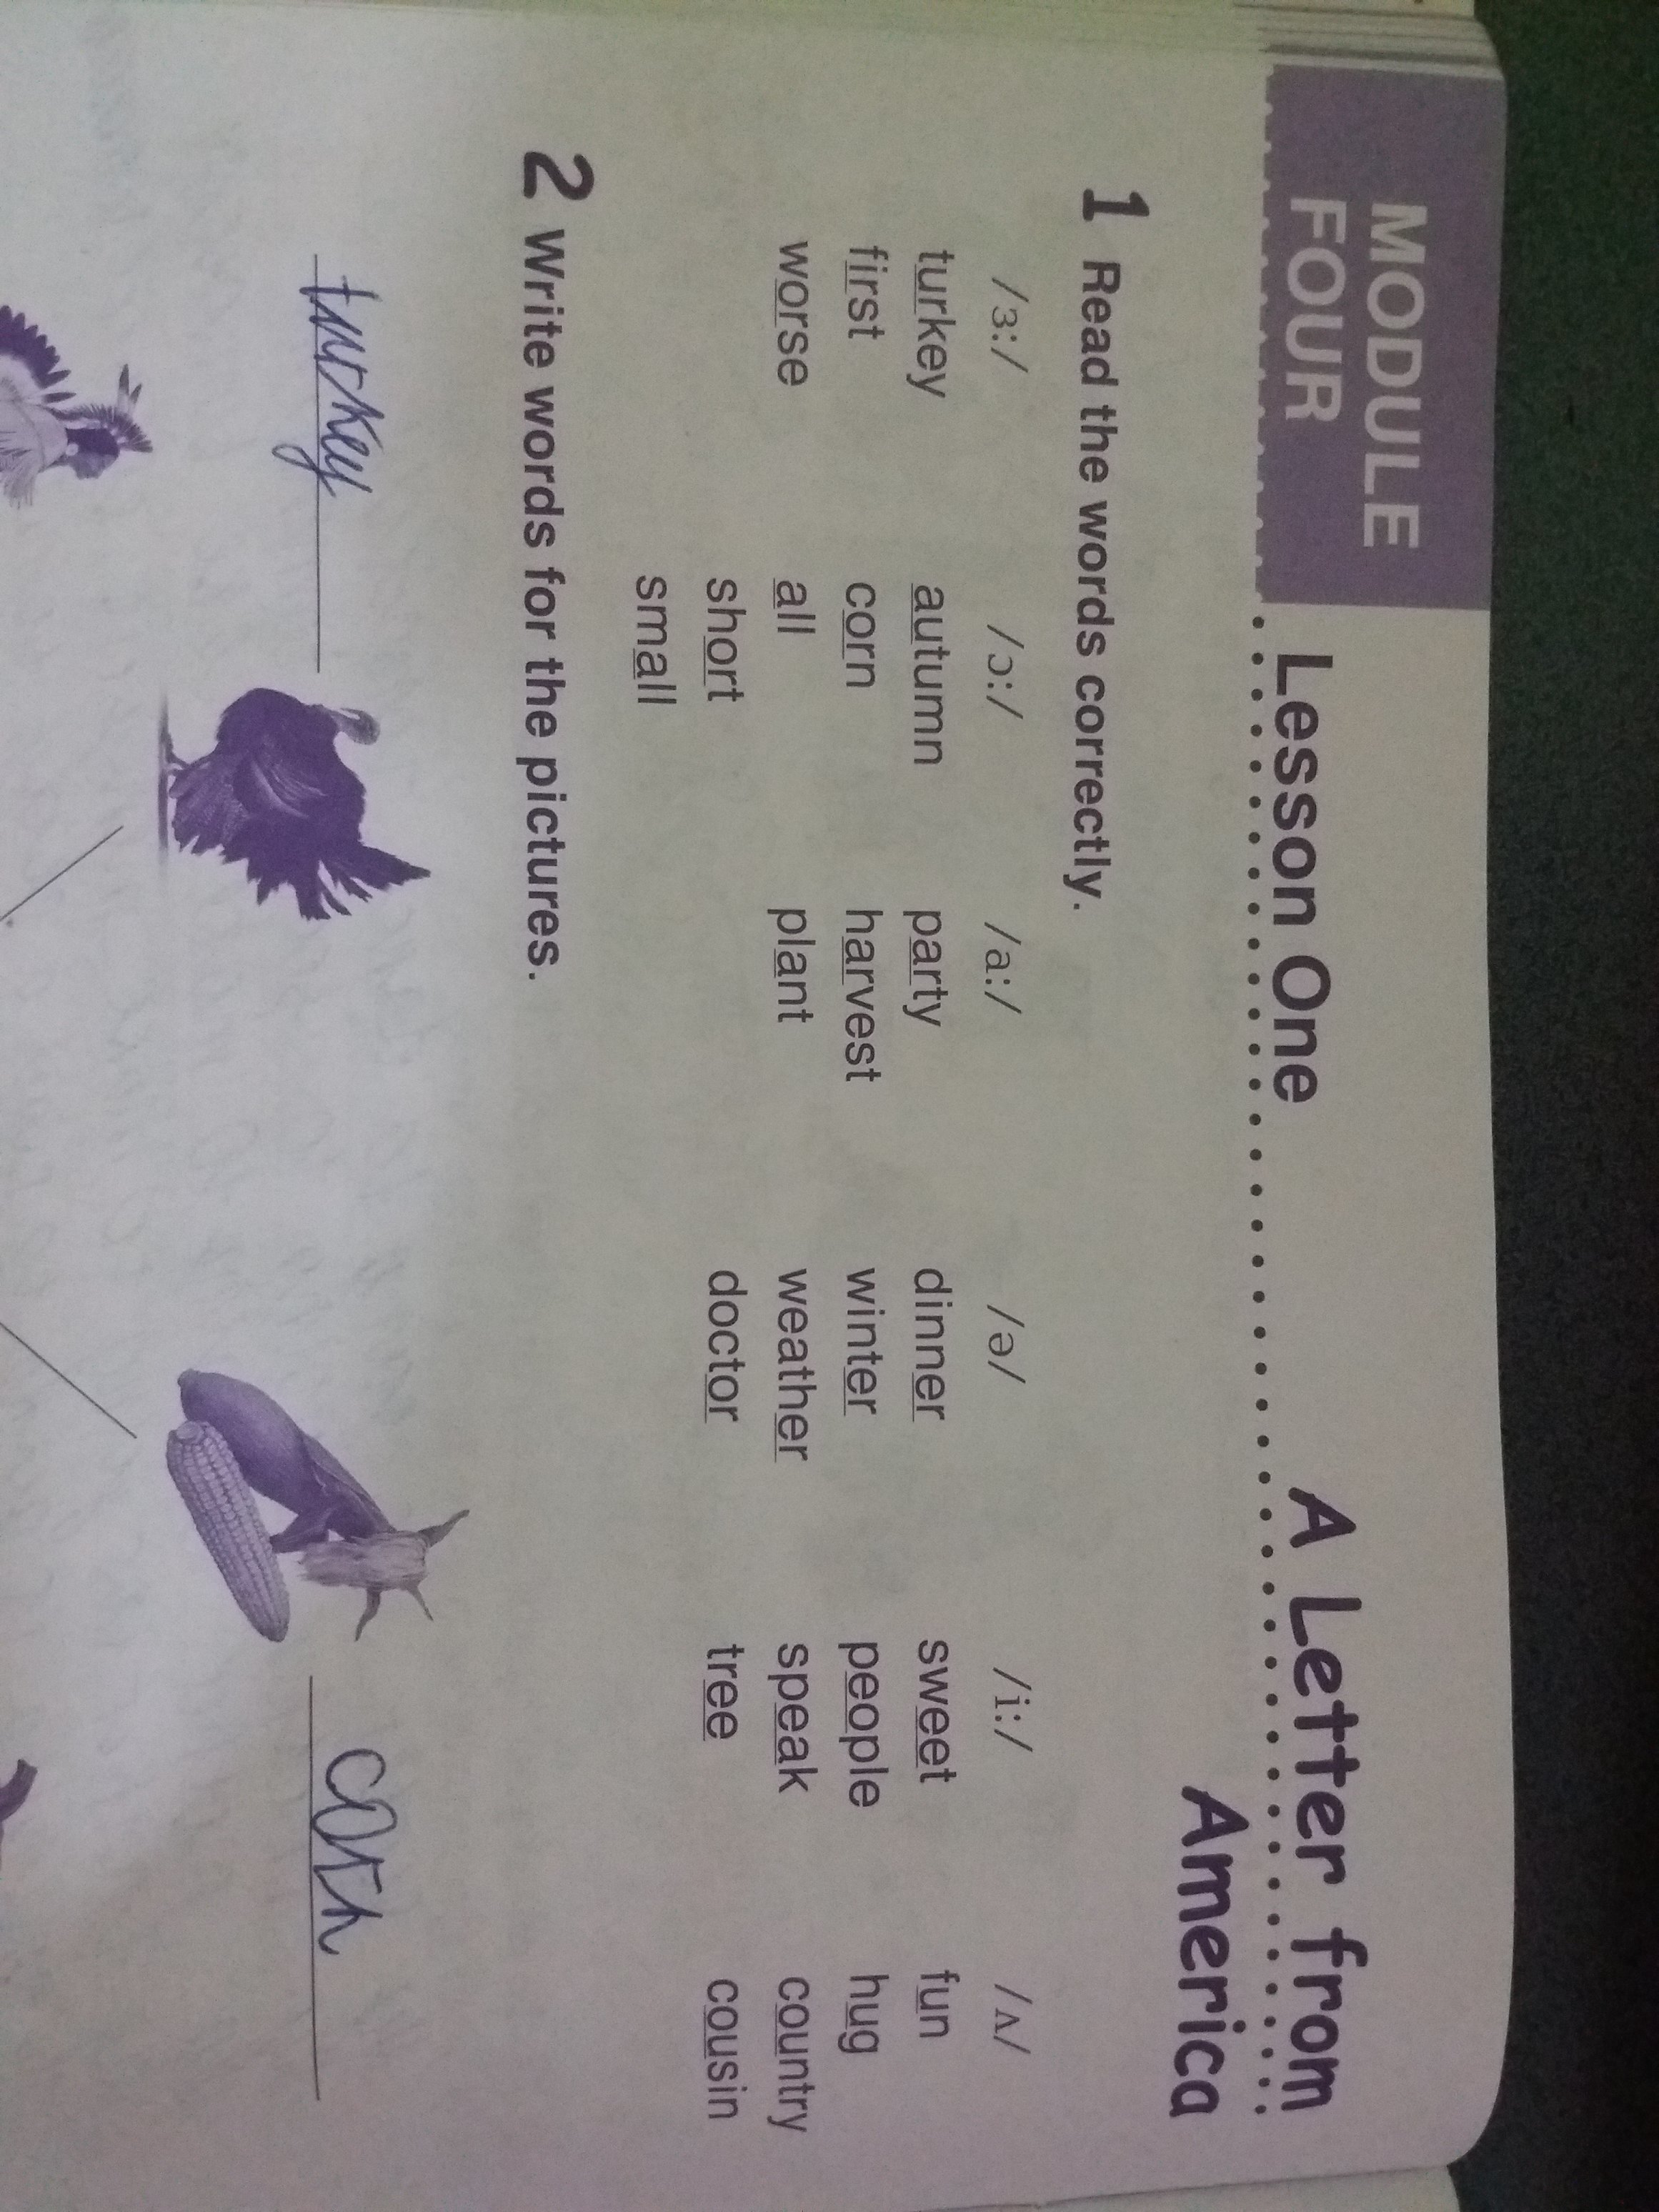 MODULE
FOUR
Lesson One
A Letter from
America
1 Read the words correctly.
/ɜ:/ /ɔ:/ /a:/ /ə/ /i:/ /ʌ/
turkey autumn party dinner sweet fun
first corn harvest winter people hug
worse all plant weather speak country
short doctor tree cousin
small
2 Write words for the pictures.
turkey corn